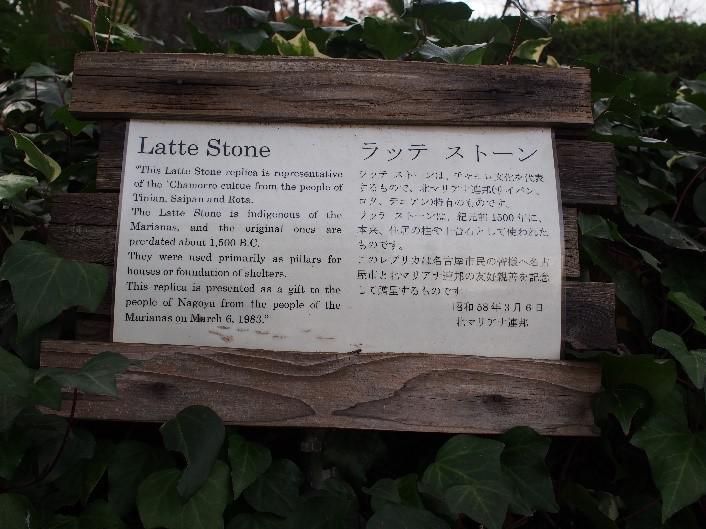 Latte Stone
"This Latte Stone replica is representative
of the 'Chamorro cultue from the people of
Tinian, Saipan and Rota.
The Latte Stone is indigenous of the
Marianas, and the original ones are
pre-dated about 1,500 B.C.
They were used primarily as pillars for
houses or foundation of shelters.
This replica is presented as a gift to the
people of Nagoya from the people of the
Marianas on March 6, 1983."
ラッテ ストーン
ラッテ ストーンは、チャモロ文化を代表
するもので、北マリアナ連邦(サイパン、
ロタ、テニアン)特有のものです。
ラッテ ストーンは、紀元前1500年に、
本来、住居の柱や土台石として使われた
ものです。
このレプリカは名古屋市民の皆様へ名古
屋市と北マリアナ連邦の友好親善を記念
して贈呈するものです。
昭和58年3月6日
北マリアナ連邦